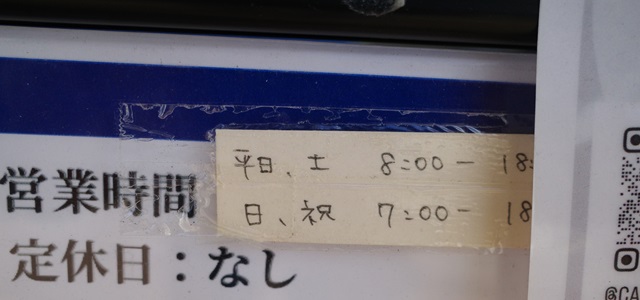 平日、土 8:00－ 18:
営業時間
日、祝 7:00－ 18
定休日：なし
@CA